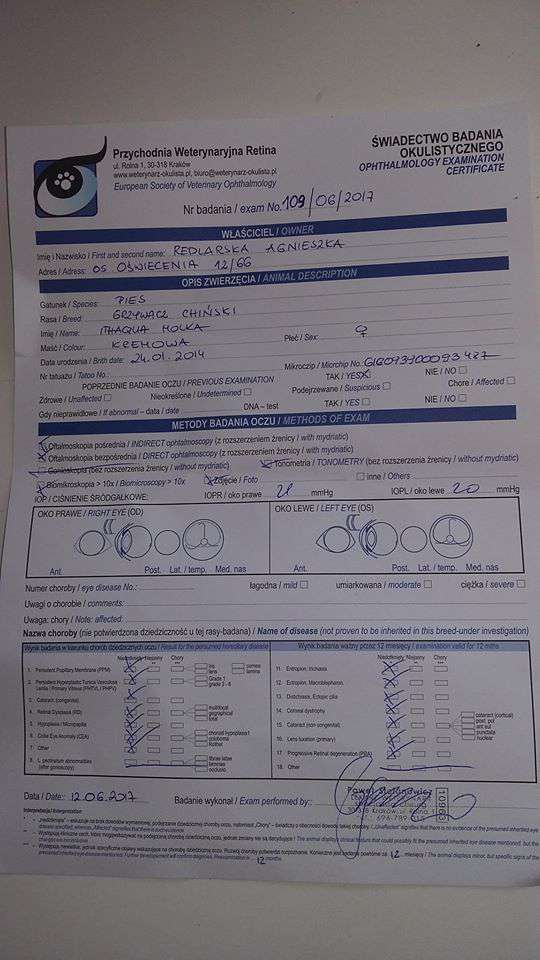 Przychodnia Weterynaryjna Retina
ul. Rolna 1, 30-318 Kraków
www.weterynarz-okulista.pl, biuro@weterynarz-okulista.pl
European Society of Veterinary Ophthalmology
ŚWIADECTWO BADANIA
OKULISTYCZNEGO
OPHTHALMOLOGY EXAMINATION
CERTIFICATE
Nr badania / exam No. 109/06/2017
WŁAŚCICIEL / OWNER
Imię i Nazwisko / First and second name: REDLARSKA AGNIESZKA
Adres / Adress: OS OŚWIECENIA 12/66
OPIS ZWIERZĘCIA / ANIMAL DESCRIPTION
Gatunek / Species: PIES
Rasa / Breed: GRZYWACZ CHIŃSKI
Imię / Name: ITHAQUA MOLKA
Płeć / Sex: ♀
Maść / Colour: KREMOWA
Data urodzenia / Brith date: 24.01.2014
Mikroczip / Microchip No.:
Nr tatuażu / Tatoo No.:
TAK / YES X NIE / NO
POPRZEDNIE BADANIE OCZU / PREVIOUS EXAMINATION
Zdrowe / Unaffected Nieokreślone / Undetermined Podejrzewane / Suspicious Chore / Affected
Gdy nieprawidłowe / If abnormal – data / date DNA – test TAK / YES NIE / NO
METODY BADANIA OCZU / METHODS OF EXAM
Oftalmoskopia pośrednia / INDIRECT ophtalmoscopy (z rozszerzeniem źrenicy / with mydriatic)
Oftalmoskopia bezpośrednia / DIRECT ophtalmoscopy (z rozszerzeniem źrenicy / with mydriatic)
Gonioskopia (bez rozszerzenia źrenicy / without mydriatic) Tonometria / TONOMETRY (bez rozszerzenia źrenicy / without mydriatic)
Biomikroskopia > 10x / Biomicroscopy > 10x Zdjęcie / Foto inne / Others
IOP / CIŚNIENIE ŚRÓDGAŁKOWE: IOPR / oko prawe 21 mmHg IOPL / oko lewe 20 mmHg
OKO PRAWE / RIGHT EYE (OD) OKO LEWE / LEFT EYE (OS)
Ant. Post. Lat. / temp. Med. nas Ant. Post. Lat. / temp. Med. nas
Numer choroby / eye disease No.: łagodna / mild umiarkowana / moderate ciężka / severe
Uwagi o chorobie / comments:
Uwaga: chory / Note: affected:
Nazwa choroby (nie potwierdzona dziedziczność u tej rasy-badana) / Name of disease (not proven to be inherited in this breed-under investigation)
Wynik badania w kierunku chorób dziedzicznych oczu / Result for the presumed hereditary disease
Niedotknięty Niepewny Chory
1. Persistent Pupillary Membrane (PPM) iris lens cornea lamina
2. Persistent Hyperplastic Tunica Vasculosa Lentis / Primary Vitreous (PHTVL / PHPV) Grade 1 grade 2 - 6
3. Cataract (congenital)
4. Retinal Dysplasia (RD) multifocal geographical total
5. Hypoplasia / Micropapilla
6. Collie Eye Anomaly (CEA) choroid hypoplasia coloboma
7. Other
Wynik badania ważny przez 12 miesięcy / examination valid for 12 mths
Niedotknięty Niepewny Chory
11. Entropion, trichiasis
12. Entropion, Macroblepharon
13. Distichiasis, Ectopic cilia
14. Corneal dystrophy
15. Cataract (non-congenital) cataract (cortical) post. pol ant sut punctata nuclear
16. Lens luxation (primary)
17. Progressive Retinal degeneration (PRA)
18. Other
Data / Date: 12.06.2017 Badanie wykonał / Exam performed by:
Paweł Stefanowicz
10963
Interpretacja / Interpretation